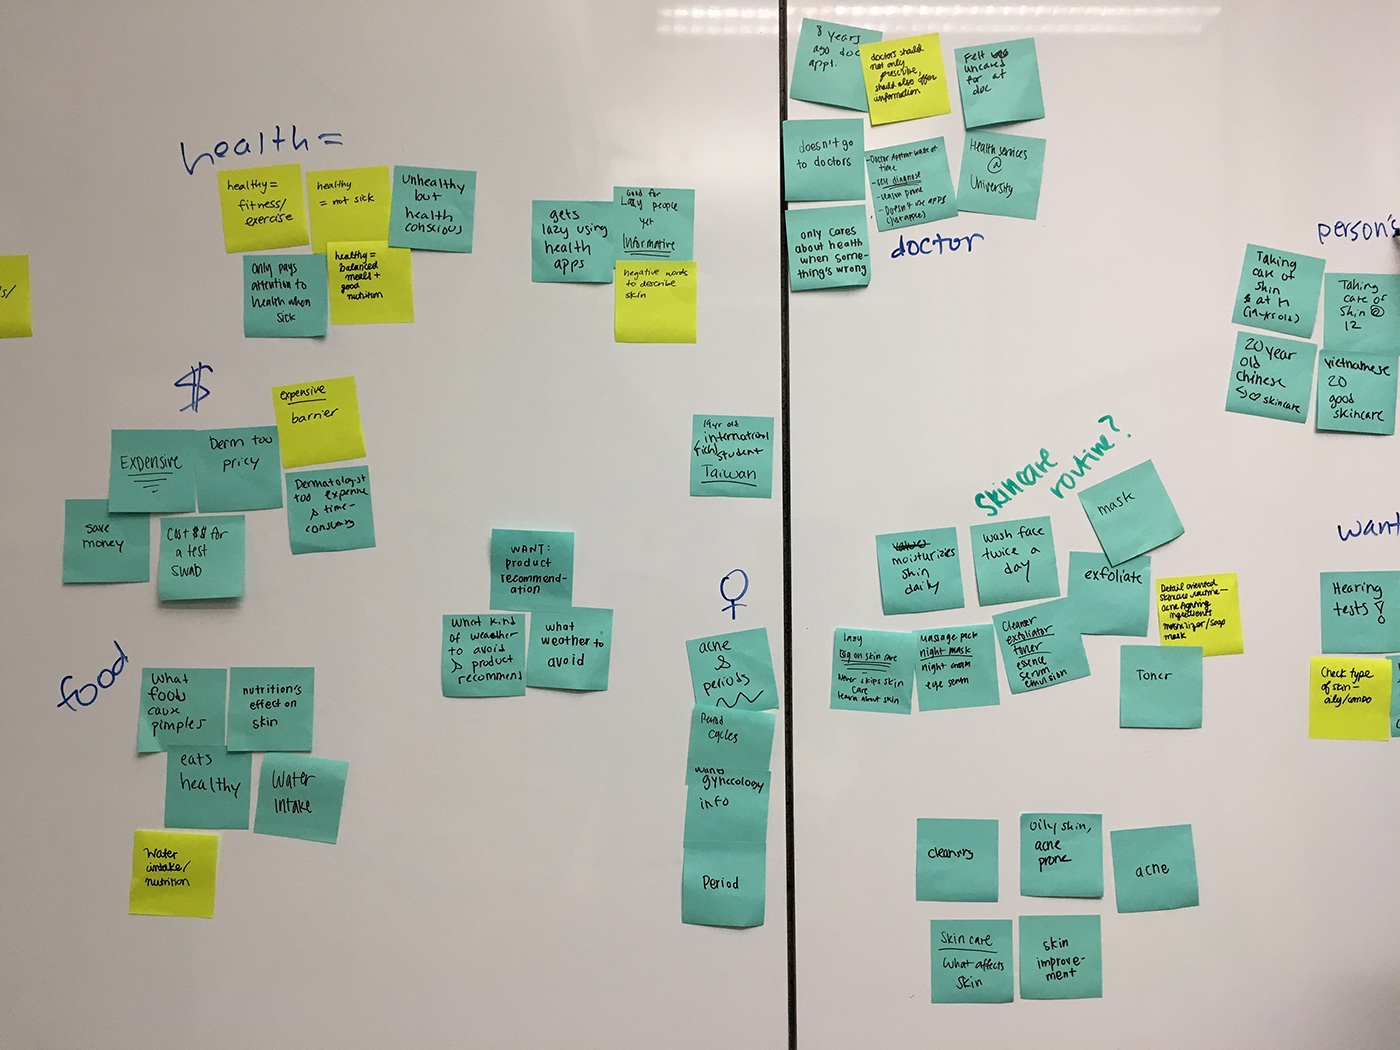 health =
healthy =
fitness/
exercise
healthy
= not sick
unhealthy
but
health
conscious
only pays
attention to
health when
sick
healthy =
balanced
meals +
good
nutrition
gets
lazy using
health
apps
Good for
Lazy people
yet
Informative
negative words
to describe
skin
$
expensive
barrier
EXPENSIVE
Derm too
pricy
Dermatologist
too expensive
& time-
consuming
save
money
Cost $$ for
a test
swab
food
what
foods
cause
pimples
nutrition's
effect on
skin
eats
healthy
Water
intake
water
intake/
nutrition
WANT:
product
recommend-
ation
what kind
of weather
to avoid
& product
recommend
what
weather to
avoid
19yr old
international
(rich) student
Taiwan
♀
acne
&
periods
Period
cycles
wants
gynecology
info
Period
8 years
ago doc
appt.
doctors should
not only
prescribe,
should also offer
information
Felt
uncared
for at
doc
doesn't go
to doctors
- Doctor Appnt waste of
time
- self diagnose
- Doesn't use apps
(just apple)
Health services
@
University
only cares
about health
when some-
thing's wrong
doctor
person's
Taking
care of
skin
at
(19 yrs old)
Taking
care of
skin @
12
20 year
old
chinese
♡ skincare
vietnamese
20
good
skincare
skincare
routine?
mask
moisturizes
skin
daily
wash face
twice a
day
exfoliate
Detail oriented
skincare routine -
acne fighting
ingredients
moisturizer/soap
mask
lazy
Big on skin care
Never skips skin
care
learn about skin
Massage pack
night mask
night cream
eye serum
Cleanser
exfoliator
toner
essence
serum
emulsion
Toner
want
Hearing
tests!
Check type
of skin -
oily/combo
cleaning
oily skin,
acne
prone
acne
Skin care
what affects
skin
skin
improve-
ment